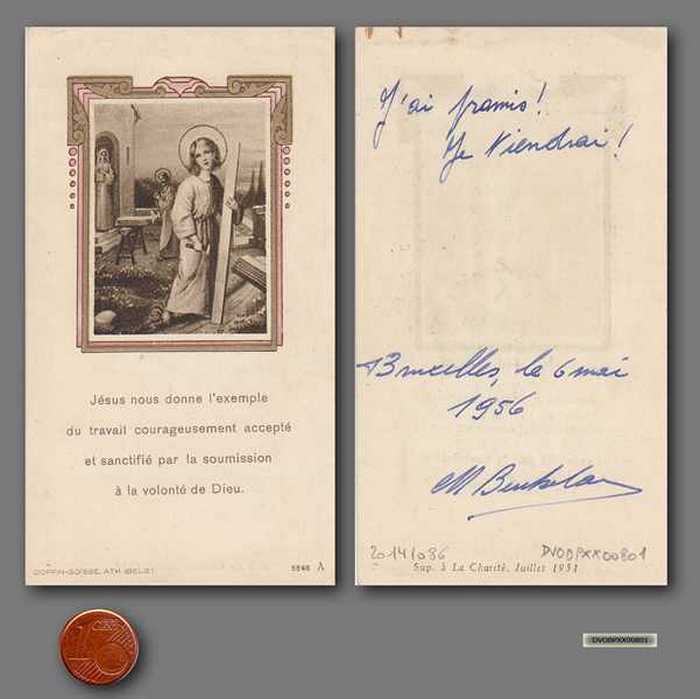 Jésus nous donne l'exemple
du travail courageusement accepté
et sanctifié par la soumission
à la volonté de Dieu.
5846 A
J'ai promis!
Je viendrai!
Bruxelles, le 6 mai
1956
M
2014/086
DVODPXX00801
Sup. à La Charité, Juillet 1951
1
DVOBPXX00801